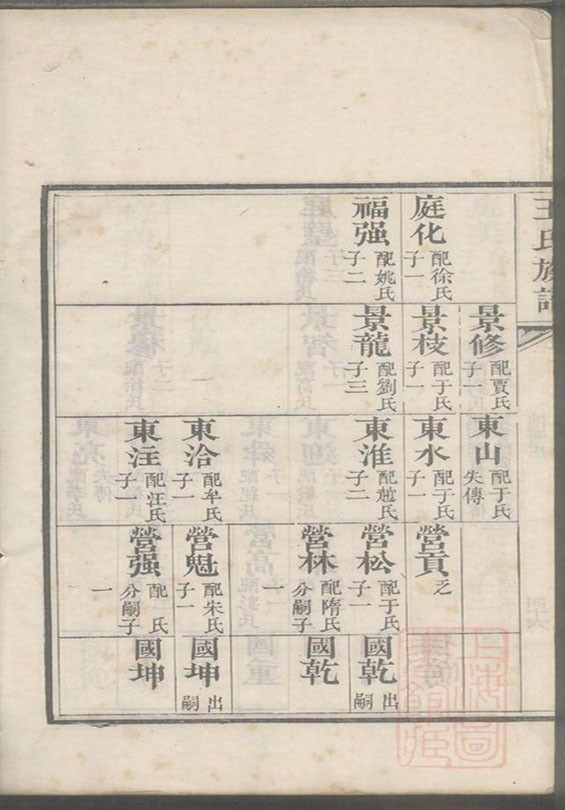 王氏族譜
庭化 配徐氏 子一
福强 配姚氏 子二
景修 配賈氏 子一
景枝 配于氏 子一
景龍 配劉氏 子三
東山 配于氏 失傳
東水 配于氏 子一
東淮 配趙氏 子二
東洽 配牟氏 子一
東注 配汪氏 子一
營貢 乏
營松 配于氏 子一
營林 配隋氏 分嗣子一
營魁 配朱氏 子一
營强 配 氏 分嗣子一
國乾 出嗣
國乾
國坤 出嗣
國坤